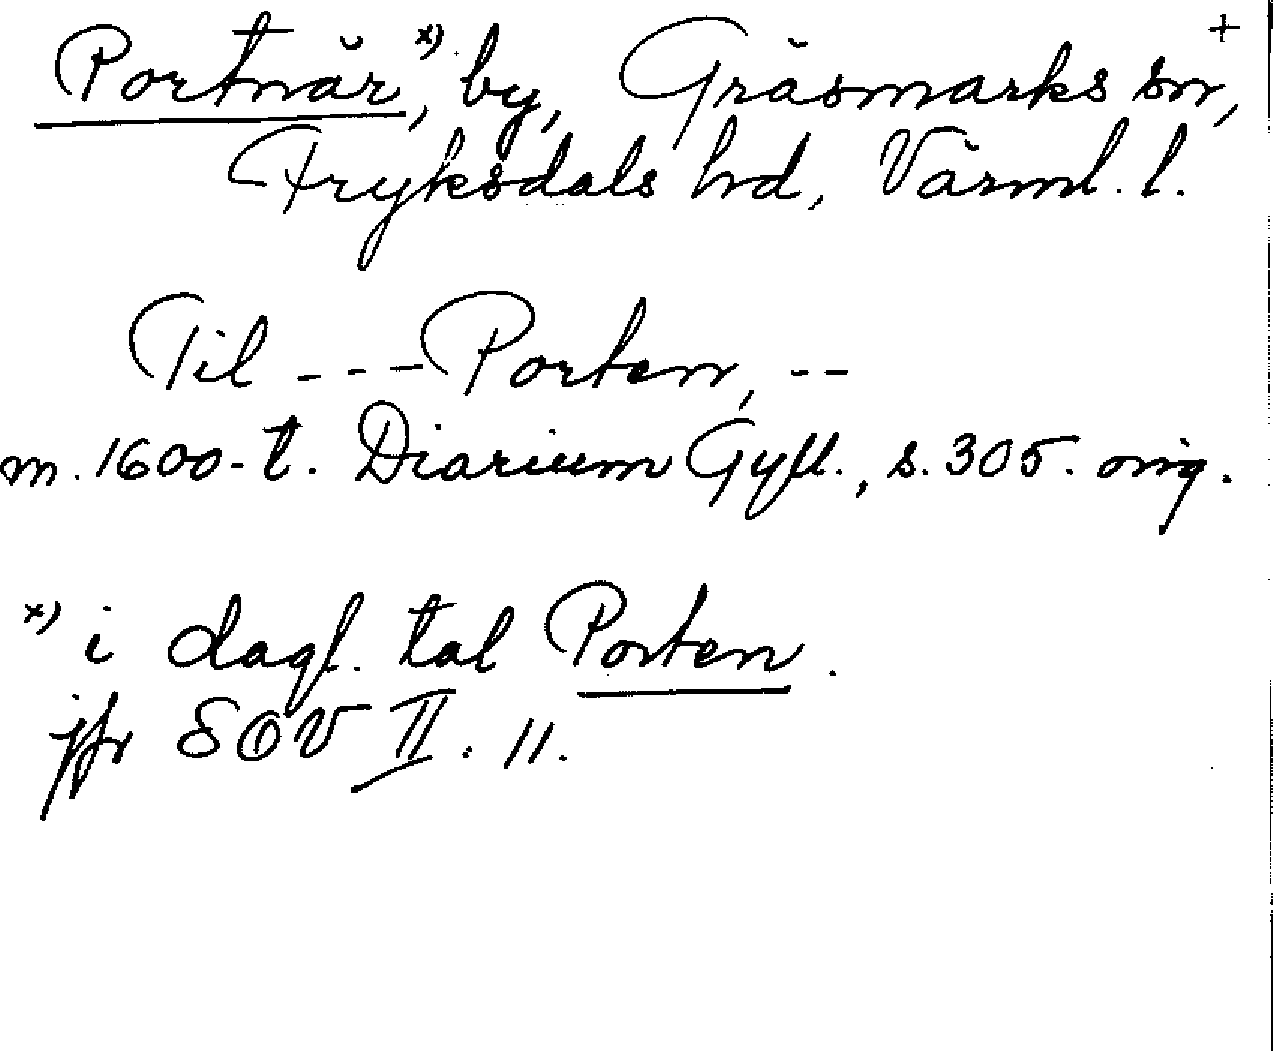 +
Portnär x), by, Gräsmarks sn,
Fryksdals hd, Värml. l.
Til - - - Porten, - -
m. 1600-t. Diarium Gyll., s. 305. orig.
x) i dagl. tal Porten.
jfr SOV II. 11.